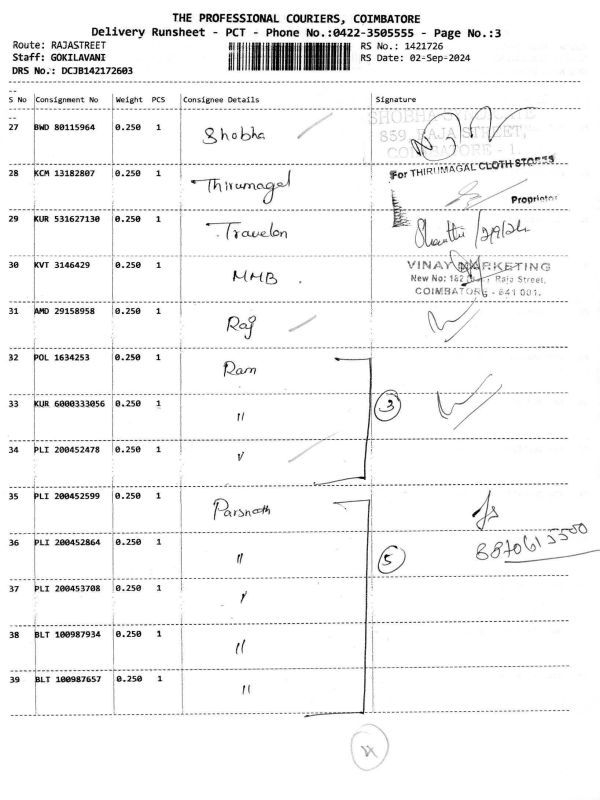 THE PROFESSIONAL COURIERS, COIMBATORE
Delivery Runsheet - PCT - Phone No.:0422-3505555 - Page No.:3
Route: RAJASTREET RS No.: 1421726
Staff: GOKILAVANI RS Date: 02-Sep-2024
DRS No.: DCJB142172603
S No Consignment No Weight PCS Consignee Details Signature
27 BWD 80115964 0.250 1 Shobha
859, RAJA STREET,
COIMBATORE - 1
28 KCM 13182807 0.250 1 Thirumagal For THIRUMAGAL CLOTH STORES
Proprietor
29 KUR 531627130 0.250 1 Travelon Shanthi /2/9/24
30 KVT 3146429 0.250 1 MMB VINAY MARKETING
New No: 182 Raja Street,
COIMBATORE - 641 001.
31 AMD 29158958 0.250 1 Raj
32 POL 1634253 0.250 1 Ram
33 KUR 6000333056 0.250 1 " 3
34 PLI 200452478 0.250 1 "
35 PLI 200452599 0.250 1 Parsnath
36 PLI 200452864 0.250 1 " 5 8870615500
37 PLI 200453708 0.250 1 "
38 BLT 100987934 0.250 1 "
39 BLT 100987657 0.250 1 "